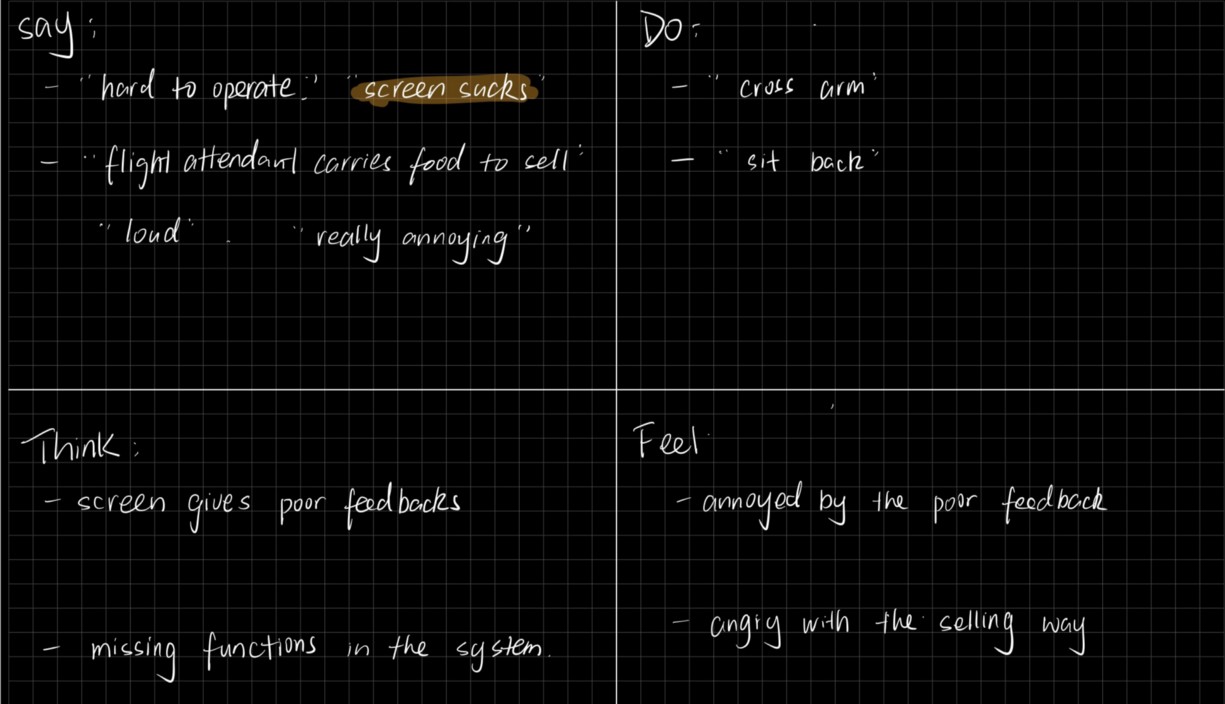 say:
- "hard to operate." "screen sucks"
- "flight attendant carries food to sell"
"loud". "really annoying"
Do:
- "cross arm"
- "sit back"
Think:
- screen gives poor feedbacks
- missing functions in the system.
Feel
- annoyed by the poor feedback
- angry with the selling way